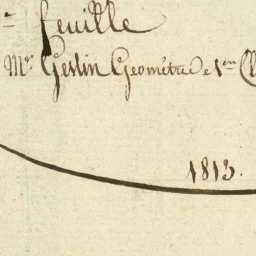 feuille
Mr. Geslin Geomètre de 1ere Cl
1813.